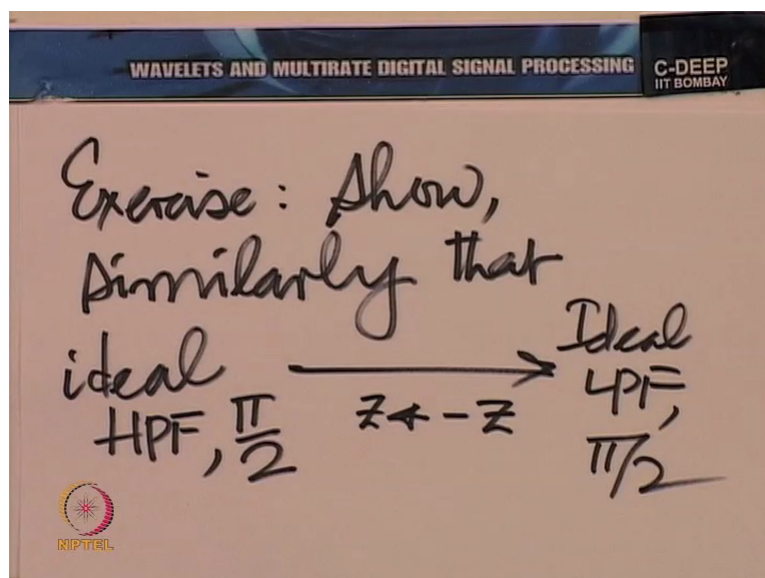 WAVELETS AND MULTIRATE DIGITAL SIGNAL PROCESSING
C-DEEP
IIT BOMBAY
Exercise: Show,
similarly that
ideal HPF, π/2 → z ← -z Ideal LPF, π/2
NPTEL